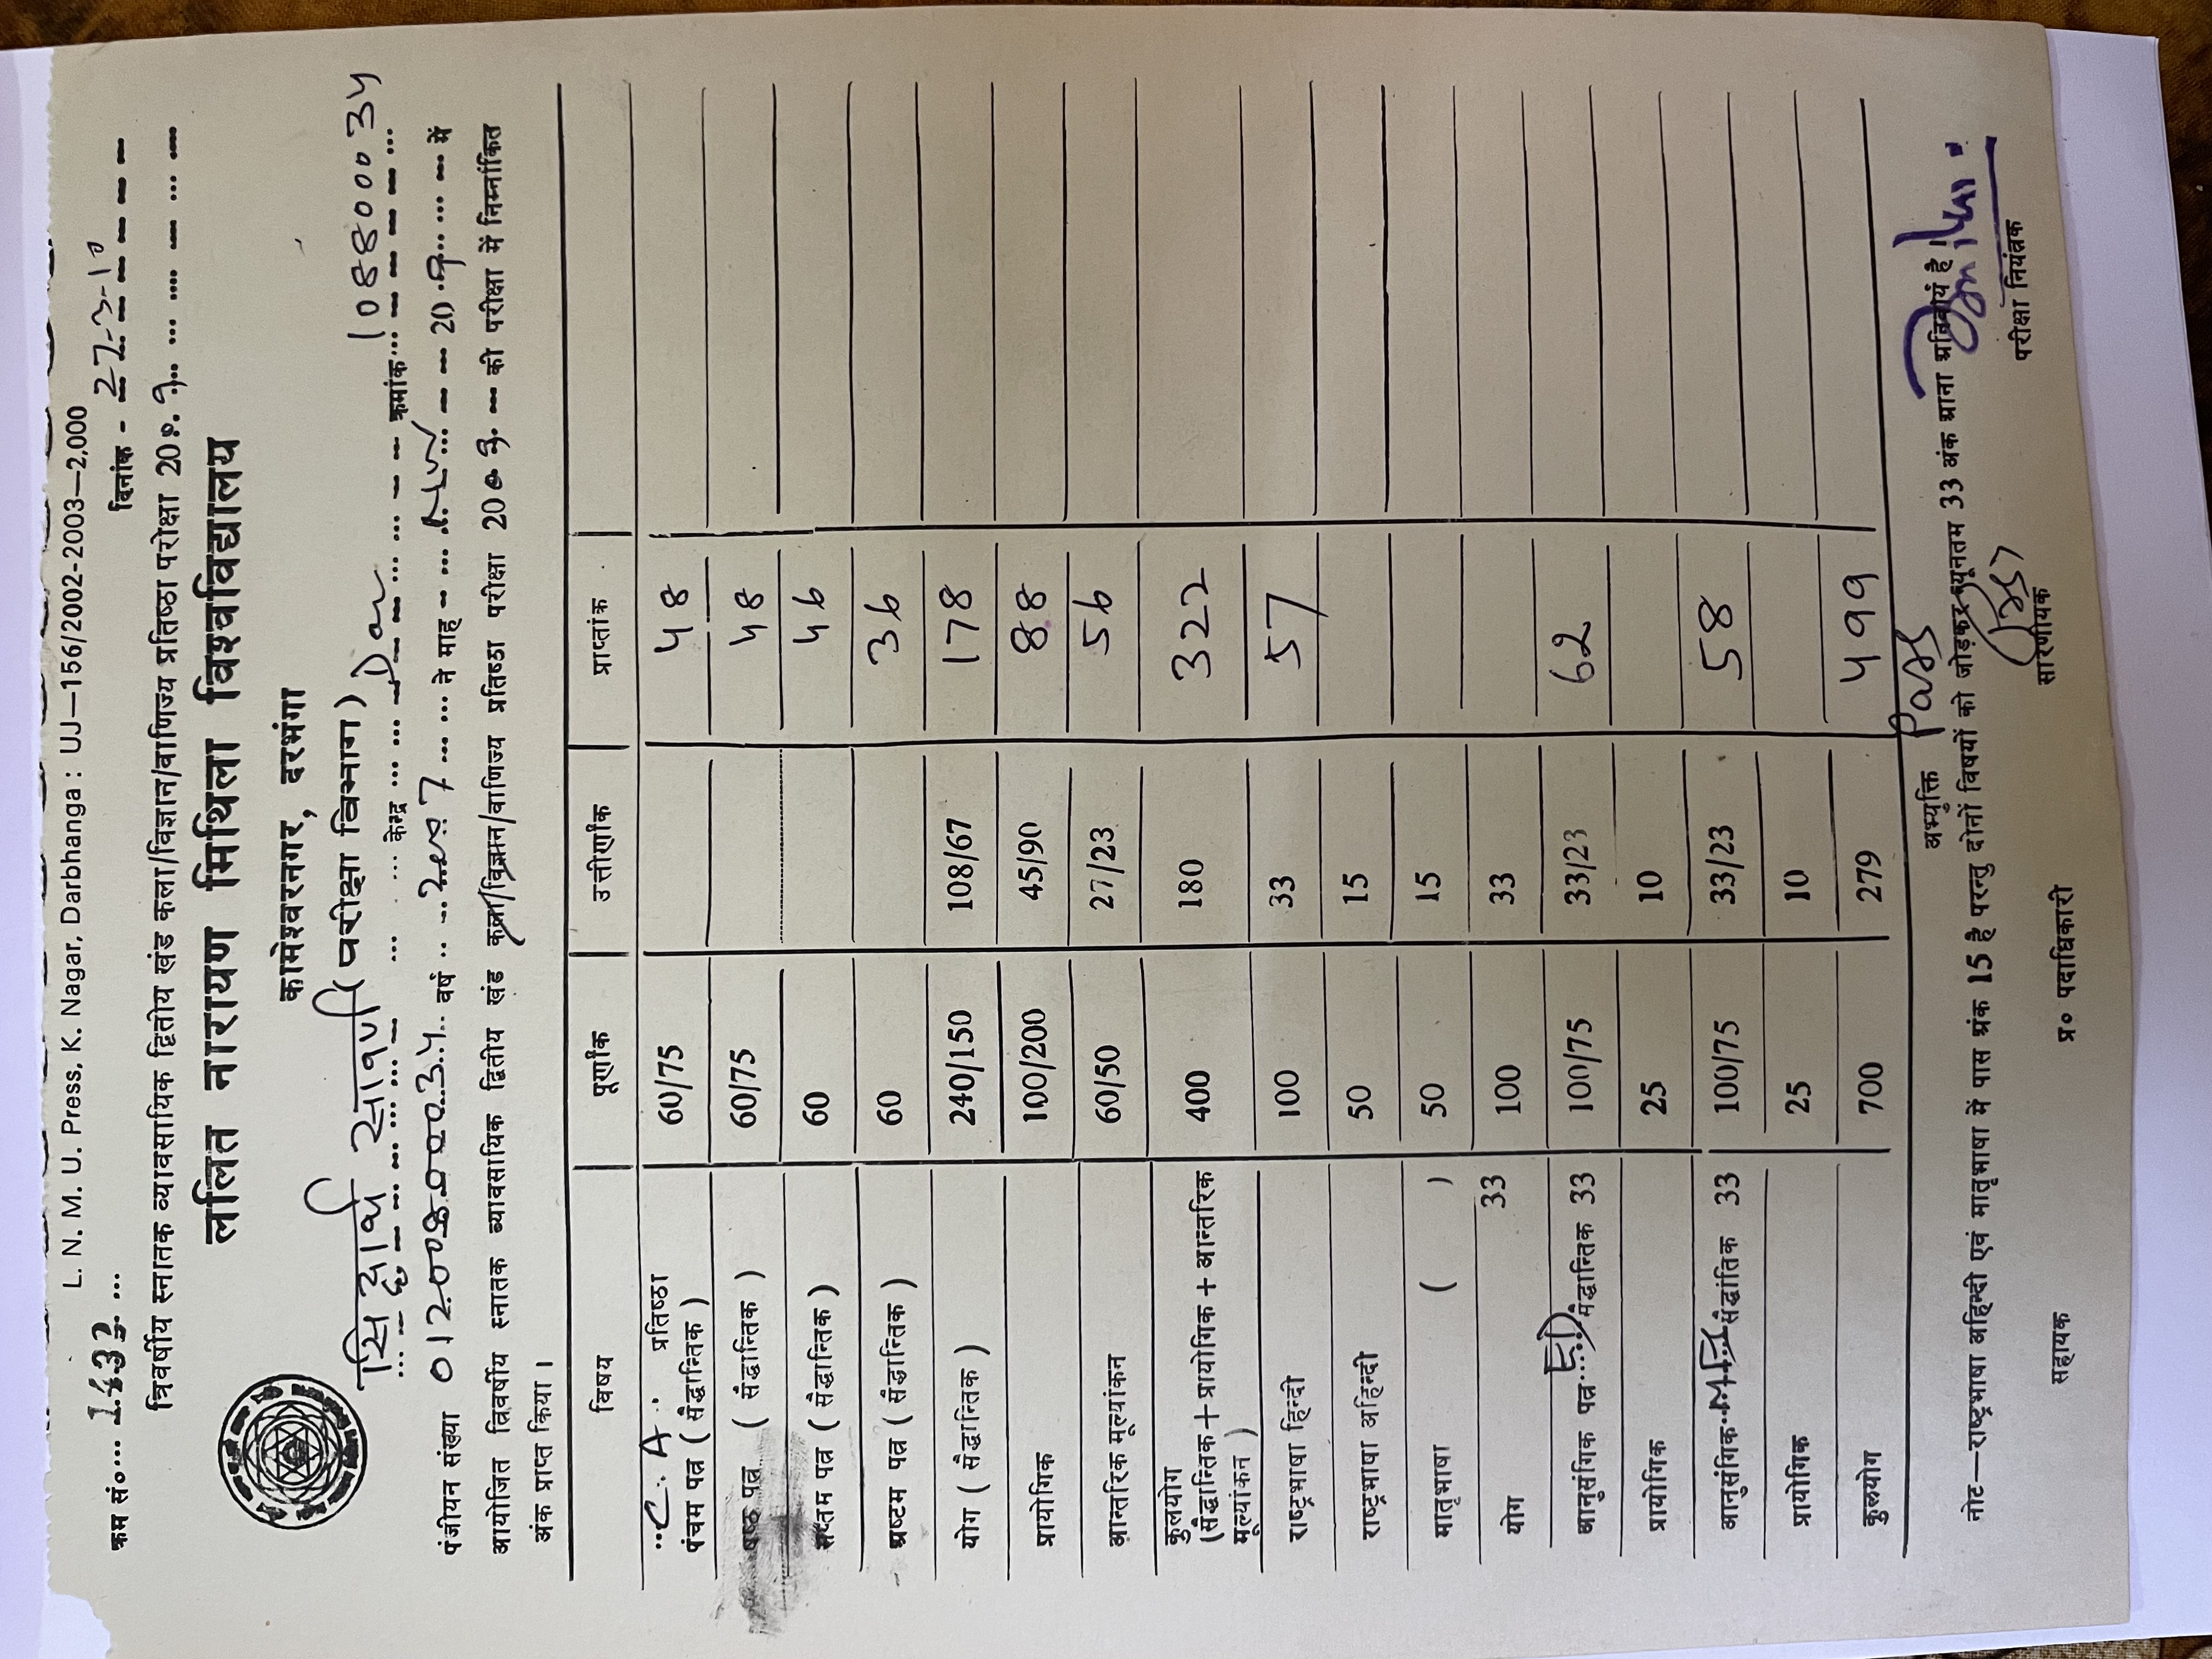 L. N. M. U. Press, K. Nagar, Darbhanga : UJ—156/2002-2003—2,000
क्रम सं०... 1433 ... दिनांक - 27-3-10
त्रिवर्षीय स्नातक व्यावसायिक द्वितीय खंड कला/विज्ञान/वाणिज्य प्रतिष्ठा परीक्षा 200९
ललित नारायण मिथिला विश्वविद्यालय
कामेश्वरनगर, दरभंगा
( परीक्षा विभाग )
सिद्धार्थ सावर्ण केन्द्र ... क्रमांक... 108800034
पंजीयन संख्या 01200800034 वर्ष 2007 ने माह 200९ में
आयोजित त्रिवर्षीय स्नातक व्यावसायिक द्वितीय खंड कला/विज्ञान/वाणिज्य प्रतिष्ठा परीक्षा 200९ की परीक्षा में निम्नांकित
अंक प्राप्त किया ।
विषय पूर्णांक उत्तीर्णांक प्राप्तांक
C. A. प्रतिष्ठा
पंचम पत्र ( सैद्धान्तिक ) 60/75 48
षष्ठ पत्र ( सैद्धान्तिक ) 60/75 48
सप्तम पत्र ( सैद्धान्तिक ) 60 46
अष्टम पत्र ( सैद्धान्तिक ) 60 36
योग ( सैद्धान्तिक ) 240/150 108/67 178
प्रायोगिक 100/200 45/90 88
आन्तरिक मूल्यांकन 60/50 27/23 56
कुलयोग
(सैद्धान्तिक + प्रायोगिक + आन्तरिक 400 180 322
मूल्यांकन )
राष्ट्रभाषा हिन्दी 100 33 57
राष्ट्रभाषा अहिन्दी 50 15
मातृभाषा ( ) 50 15
योग 33 100 33
आनुसंगिक पत्र सैद्धान्तिक 33 100/75 33/23 62
प्रायोगिक 25 10
आनुसंगिक सैद्धांतिक 33 100/75 33/23 58
प्रायोगिक 25 10
कुलयोग 700 279 499
अभ्युक्ति Pass
नोट—राष्ट्रभाषा अहिन्दी एवं मातृभाषा में पास अंक 15 है परन्तु दोनों विषयों को जोड़कर न्यूनतम 33 अंक आना अनिवार्य है।
सहायक प्र० पदाधिकारी सारणीयक परीक्षा नियंत्रक